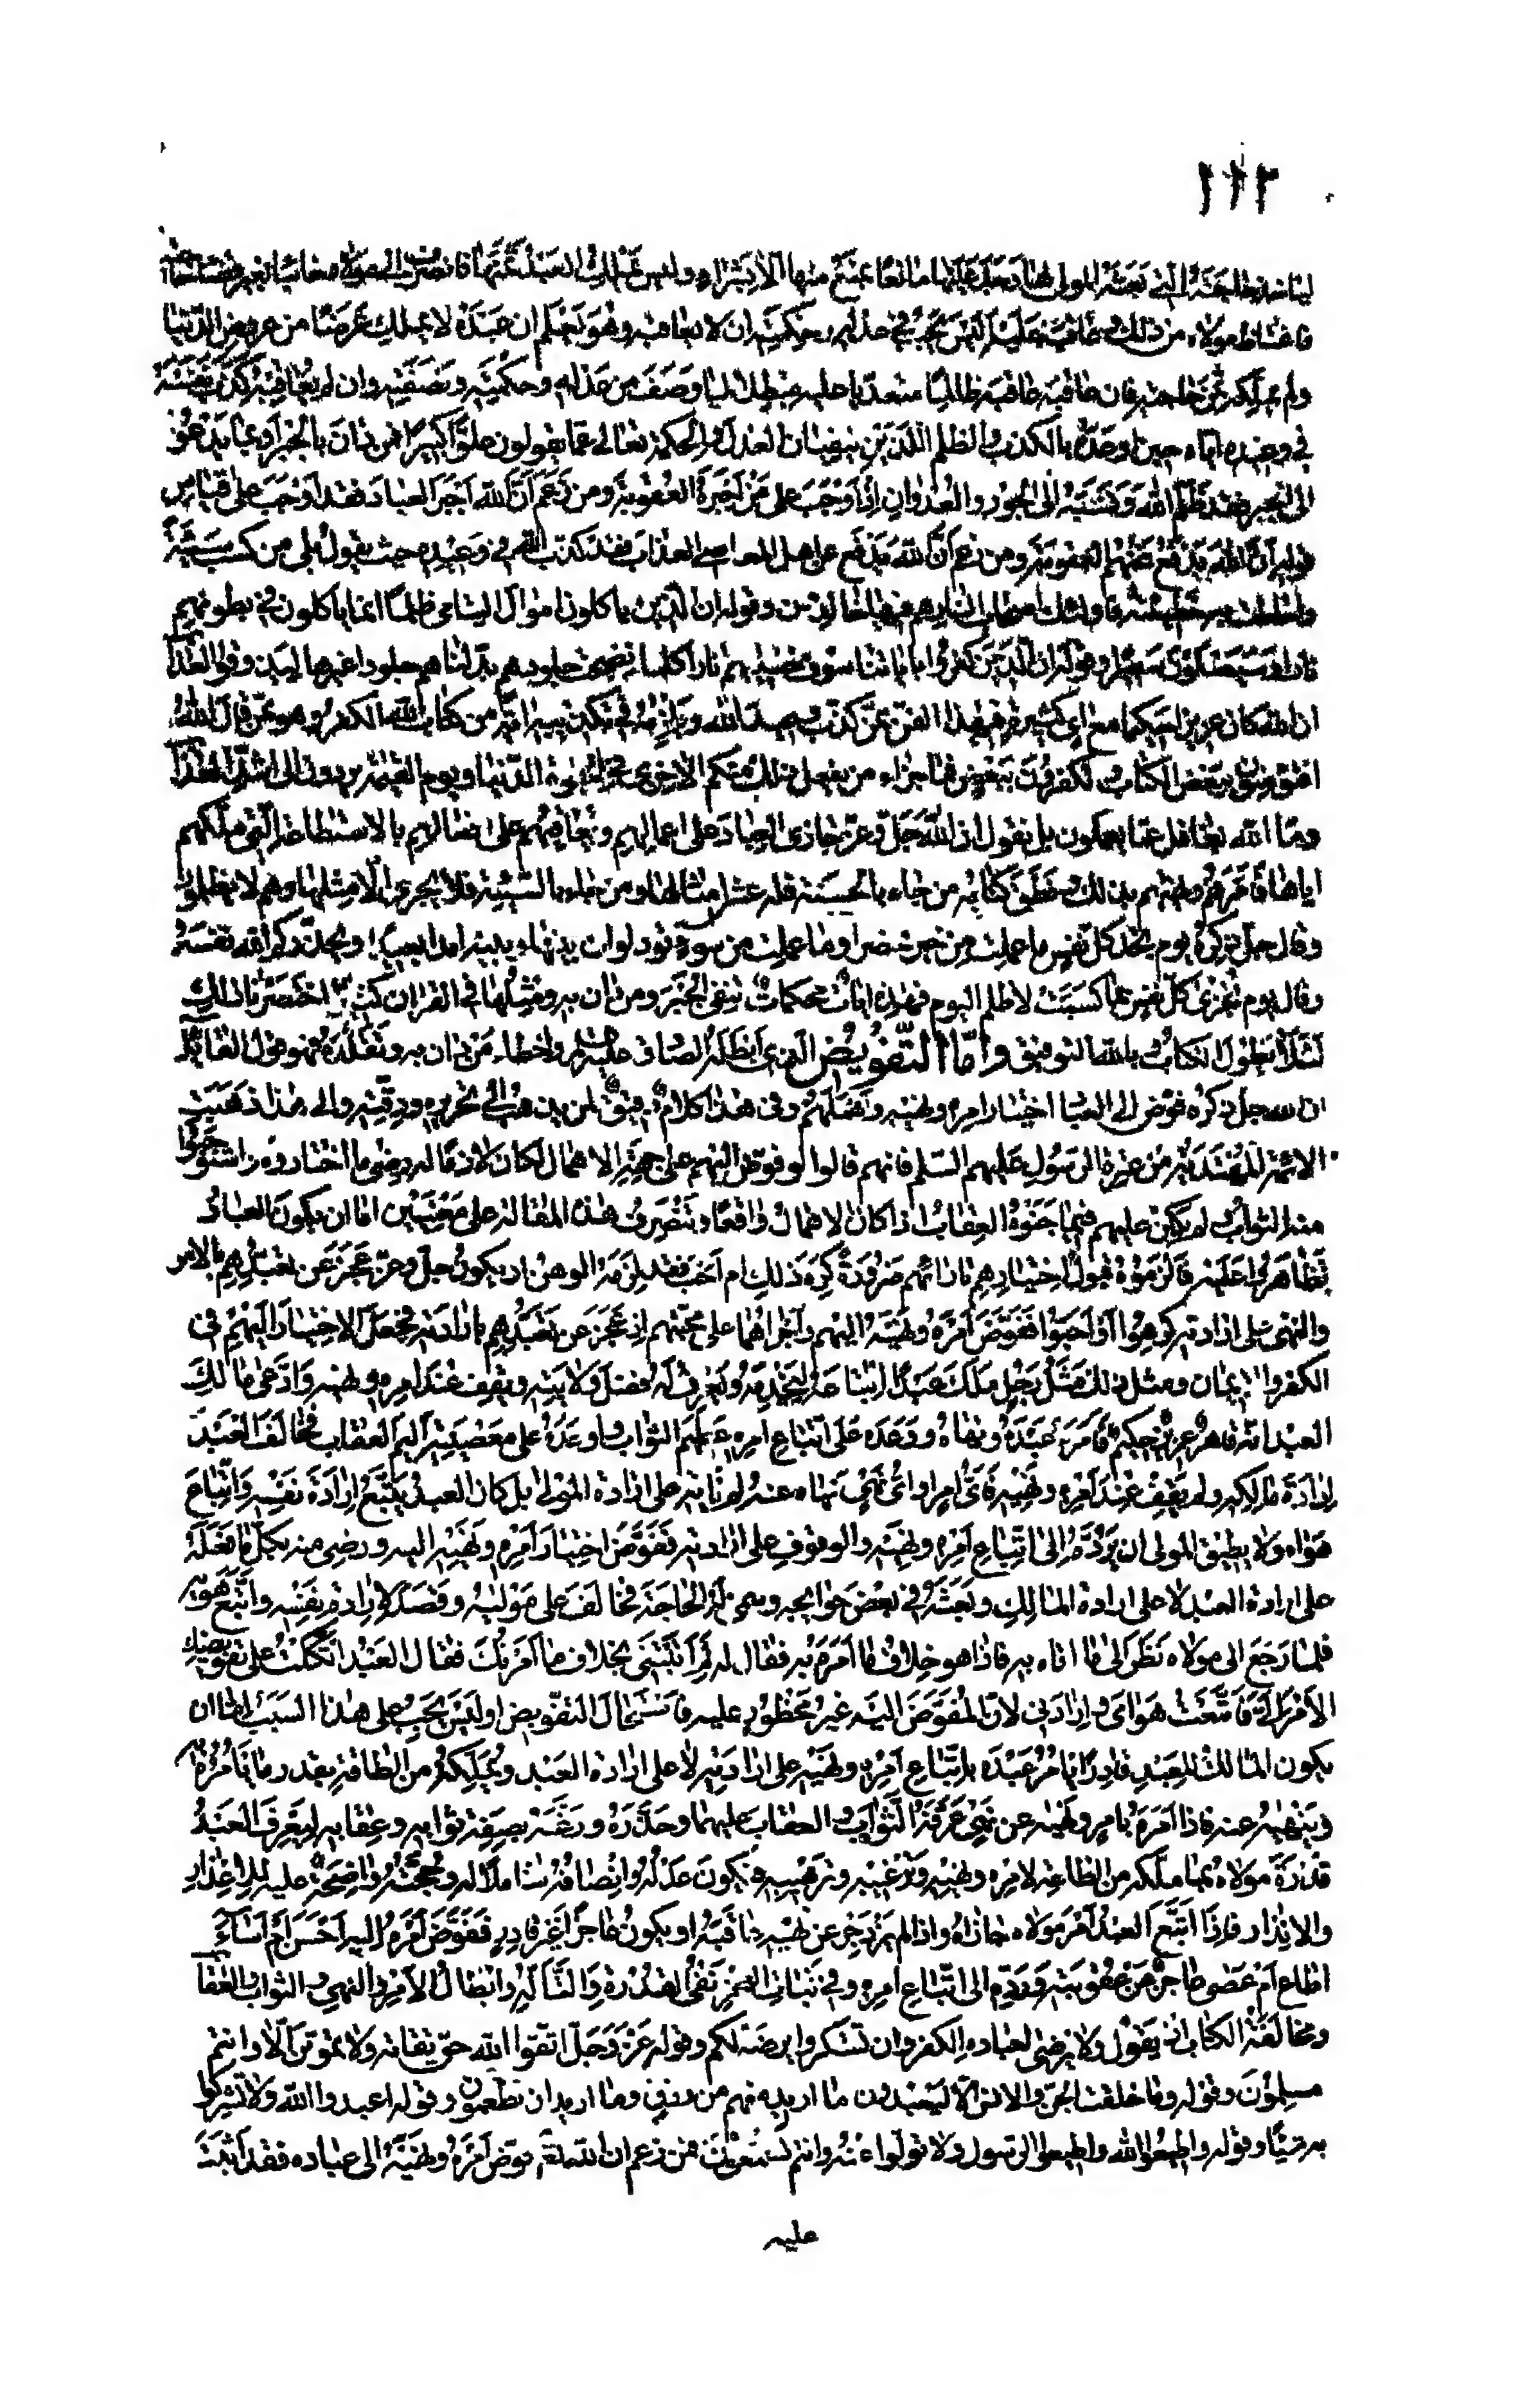 لياخذ الحاجة التي بعثه المولى لها وجد عليها مانعا يمنع منها الا بشراء وليس يملك العبد ثمنها فانصرف الى مولاه خائبا بغير قضاء حاجته
فاغتاظ مولاه من ذلك وعاقبه عليه اليس يجب في عدله وحكمته ان لا يعاقبه وهو يعلم ان عبده لا يملك عرضا من عروض الدنيا
ولم يملكه ثمن حاجته فان عاقبه عاقبه ظالما متعديا عليه مبطلا لما وصف من عدله وحكمته ونصفته وان لم يعاقبه كذب نفسه
في وعيده اياه حين اوعده بالكذب والظلم اللذين ينفيان العدل والحكمة تعالى عما يقولون علوا كبيرا فمن دان بالجبر او بما يدعو
الى الجبر فقد ظلم الله ونسبه الى الجور والعدوان اذ اوجب على من اجبره العقوبة ومن زعم ان الله اجبر العباد فقد اوجب على قياس
قوله ان الله يدفع عنهم العقوبة ومن زعم ان الله يدفع عن اهل المعاصي العذاب فقد كذب الله في وعيده حيث يقول بلى من كسب سيئة
واحاطت به خطيئته فاولئك اصحاب النار هم فيها خالدون وقوله ان الذين ياكلون اموال اليتامى ظلما انما ياكلون في بطونهم
نارا وسيصلون سعيرا وقوله ان الذين كفروا باياتنا سوف نصليهم نارا كلما نضجت جلودهم بدلناهم جلودا غيرها ليذوقوا العذاب
ان الله كان عزيزا حكيما مع اي كثيرة في هذا الفن ممن كذب وعيد الله ويلزمه في تكذيبه اية من كتاب الله الكفر وهو ممن قال الله
افتؤمنون ببعض الكتاب وتكفرون ببعض فما جزاء من يفعل ذلك منكم الا خزي في الحيوة الدنيا ويوم القيمة يردون الى اشد العذاب
وما الله بغافل عما يعملون بل نقول ان الله جل وعز جازى العباد على اعمالهم ويعاقبهم على افعالهم بالاستطاعة التي ملكهم
اياها فامرهم ونهاهم بذلك ونطق كتابه من جاء بالحسنة فله عشر امثالها ومن جاء بالسيئة فلا يجزى الا مثلها وهم لا يظلمون
وقال جل ذكره يوم تجد كل نفس ما عملت من خير محضرا وما عملت من سوء تود لو ان بينها وبينه امدا بعيدا ويحذركم الله نفسه
وقال اليوم تجزى كل نفس بما كسبت لا ظلم اليوم فهذه ايات محكمات تنفي الجبر ومن دان به ومثلها في القران كثير اختصرنا ذلك
لئلا يطول الكتاب وبالله التوفيق واما التفويض الذي ابطله الصادق عليه السلم واخطا من دان به وتقلده فهو قول القائل
ان الله جل ذكره فوض الى العباد اختيار امره ونهيه واهملهم وفي هذا كلام دقيق لمن يذهب الى تحريره ودقته والى هذا ذهبت
الائمة المهتدية من عترة الرسول عليهم السلم فانهم قالوا لو فوض اليهم على جهة الاهمال لكان لازما له رضى ما اختاروه واستوجبوا
منه الثواب ولم يكن عليهم فيما جنوه العقاب اذا كان الاهمال واقعا وتنصرف هذه المقالة على معنيين اما ان يكون العباد
تظاهروا عليه فالزموه قبول اختيارهم بارائهم ضرورة كره ذلك ام احب فقد لزمه الوهن او يكون جل وعز عجز عن تعبدهم بالامر
والنهي على ارادته كرهوا او احبوا ففوض امره ونهيه اليهم واجراهما على محبتهم اذ عجز عن تعبدهم بارادته فجعل الاختيار اليهم في
الكفر والايمان ومثل ذلك مثل رجل ملك عبدا ابتاعه ليخدمه ويعرف له فضل ولايته ويقف عند امره ونهيه وادعى مالك
العبد انه قاهر عزيز حكيم فامر عبده ونهاه ووعده على اتباع امره عظيم الثواب واوعده على معصيته اليم العقاب فخالف العبد
ارادة مالكه ولم يقف عند امره ونهيه فاي امر امره او اي نهي نهاه عنه لم ياته على ارادة المولى بل كان العبد يتبع ارادة نفسه واتباع
هواه ولا يطيق المولى ان يرده الى اتباع امره ونهيه والوقوف على ارادته ففوض اختيار امره ونهيه اليه ورضى منه بكل ما فعله
على ارادة العبد لا على ارادة المالك وبعثه في بعض حوائجه وسمى له الحاجة فخالف على مولاه وقصد لارادة نفسه واتبع هواه
فلما رجع الى مولاه نظر الى ما اتاه به فاذا هو خلاف ما امره به فقال له لم اتيتني بخلاف ما امرتك فقال العبد اتكلت على تفويضك
الامر الي فاتبعت هواي وارادتي لان المفوض اليه غير محظور عليه فاستحال التفويض اوليس يجب على هذا السبب اما ان
يكون المالك للعبد قادرا يامر عبده باتباع امره ونهيه على ارادته لا على ارادة العبد ويملكه من الطاقة بقدر ما يامره به
وينهيه عنه فاذا امره بامر ونهاه عن نهي عرفه الثواب والعقاب عليهما وحذره ورغبه بصفة ثوابه وعقابه ليعرف العبد
قدرة مولاه بما ملكه من الطاقة لامره ونهيه وترغيبه وترهيبه فيكون عدله وانصافه شاملا له وحجته واضحة عليه للاعذار
والانذار فاذا اتبع العبد امر مولاه جازاه واذا لم يزدجر عن نهيه عاقبه او يكون عاجزا غير قادر ففوض امره اليه احسن ام اساء
اطاع ام عصى عاجز عن عقوبته ورده الى اتباع امره وفي اثبات العجز نفي القدرة والتاله وابطال الامر والنهي والثواب والعقاب
ومخالفة الكتاب اذ يقول ولا يرضى لعباده الكفر وان تشكروا يرضه لكم وقوله عز وجل اتقوا الله حق تقاته ولا تموتن الا وانتم
مسلمون وقوله وما خلقت الجن والانس الا ليعبدون ما اريد منهم من رزق وما اريد ان يطعمون وقوله اعبدوا الله ولا تشركوا
به شيئا وقوله واطيعوا الله واطيعوا الرسول ولا تولوا عنه وانتم تسمعون فمن زعم ان الله تعالى فوض امره ونهيه الى عباده فقد اثبت
عليه